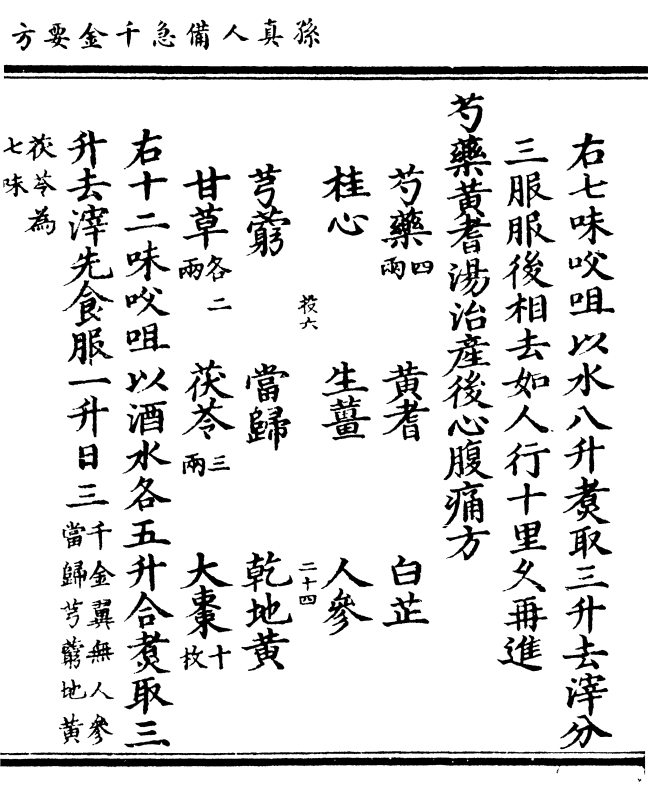 孫真人備急千金要方
右七味㕮咀以水八升煑取三升去滓分
三服服後相去如人行十里久再進
芍藥黃耆湯治產後心腹痛方
芍藥四兩 黃耆 白芷
桂心 生薑 人參
投六 二十四
芎藭 當歸 乾地黃
甘草各二兩 茯苓三兩 大棗十枚
右十二味㕮咀以酒水各五升合煑取三
升去滓先食服一升日三千金翼無人參當歸芎藭地黃
茯苓為七味